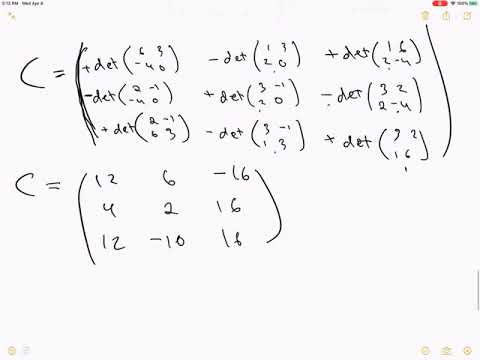 5:12 PM Wed Apr 8
100%
C = ( +det(6 3 / -4 0) -det(1 3 / 2 0) +det(1 6 / 2 -4)
-det(2 -1 / -4 0) +det(3 -1 / 2 0) -det(3 2 / 2 -4)
+det(2 -1 / 6 3) -det(3 -1 / 1 3) +det(3 2 / 1 6) )
C = ( 12 6 -16
4 2 16
12 -10 16 )